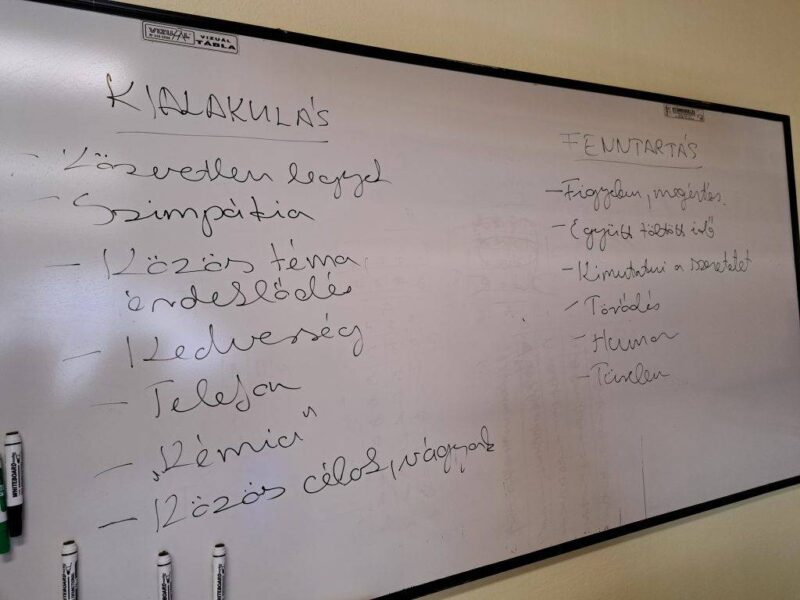 VIZUÁL
VIZUÁL
TÁBLA
KIALAKULÁS
- Közvetlen legyek
- Szimpátia
- Közös téma
érdeklődés
- Kedvesség
- Telefon
- „Kémia"
- Közös célok, vágyak
FENNTARTÁS
- Figyelem, megértés.
- Együtt töltött idő
- Kimutatni a szeretetet
- Törődés
- Humor
- Türelem
WHITEBOARD
WHITEBOARD